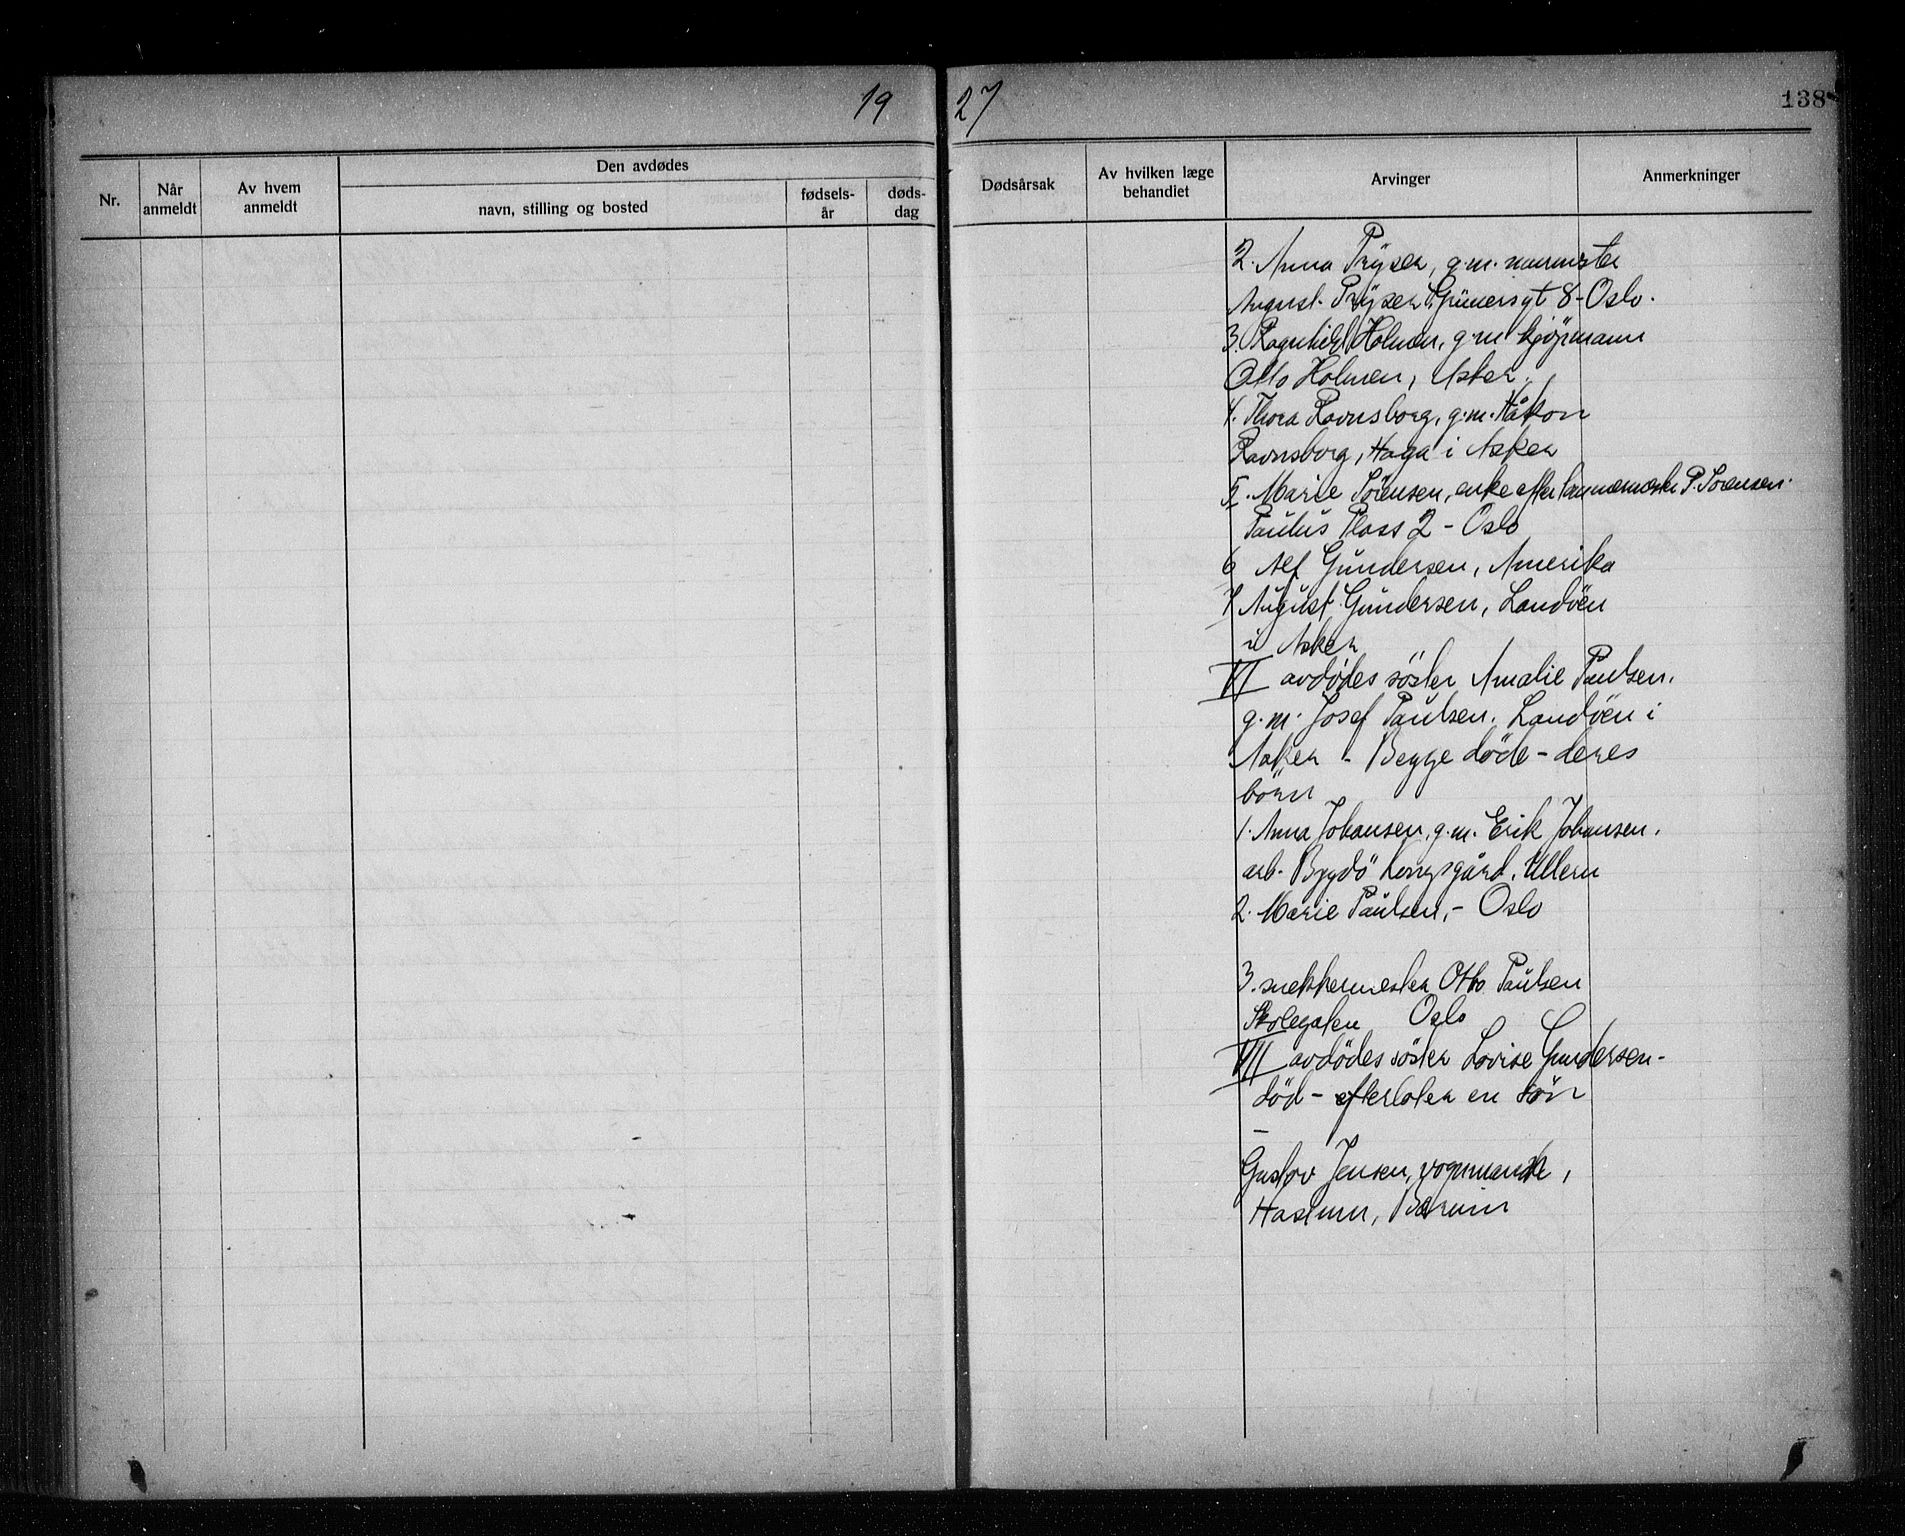 19 27
138
Nr.
Når anmeldt
Av hvem anmeldt
Den avdødes
navn, stilling og bosted
fødsels-år
døds-dag
Dødsårsak
Av hvilken læge behandlet
Arvinger
Anmerkninger
2. Anna Prÿser, g.m. murmester
August Prÿser Grünersgt 8 - Oslo.
3. Ragnhild Holmen, g.m kjøpmann
Otto Holmen, Asker.
4. Thora Ravnsborg, g.m. Håkon
Ravnsborg, Haga i Asker
5. Marie Sörensen, enke efter P. Sörensen.
Paulus Plass 2 - Oslo
6 Alf Gundersen, Amerika
7 August Gundersen, Landöen
i Asker
VI avdödes söster Amalie Paulsen.
g.m. Josef Paulsen. Landöen i
Asker - Begge döde - deres
börn
1. Anna Johansen, g.m. Erik Johansen.
arb. Bygdö kongsgård. Ullern
2. Marie Paulsen, - Oslo
3. snekkermester Otto Paulsen
Skolegaten Oslo
VII avdödes söster Lovise Gundersen -
död - efterlater en sön
-
Gustav Jensen, vognmand,
Haslum, Bærum